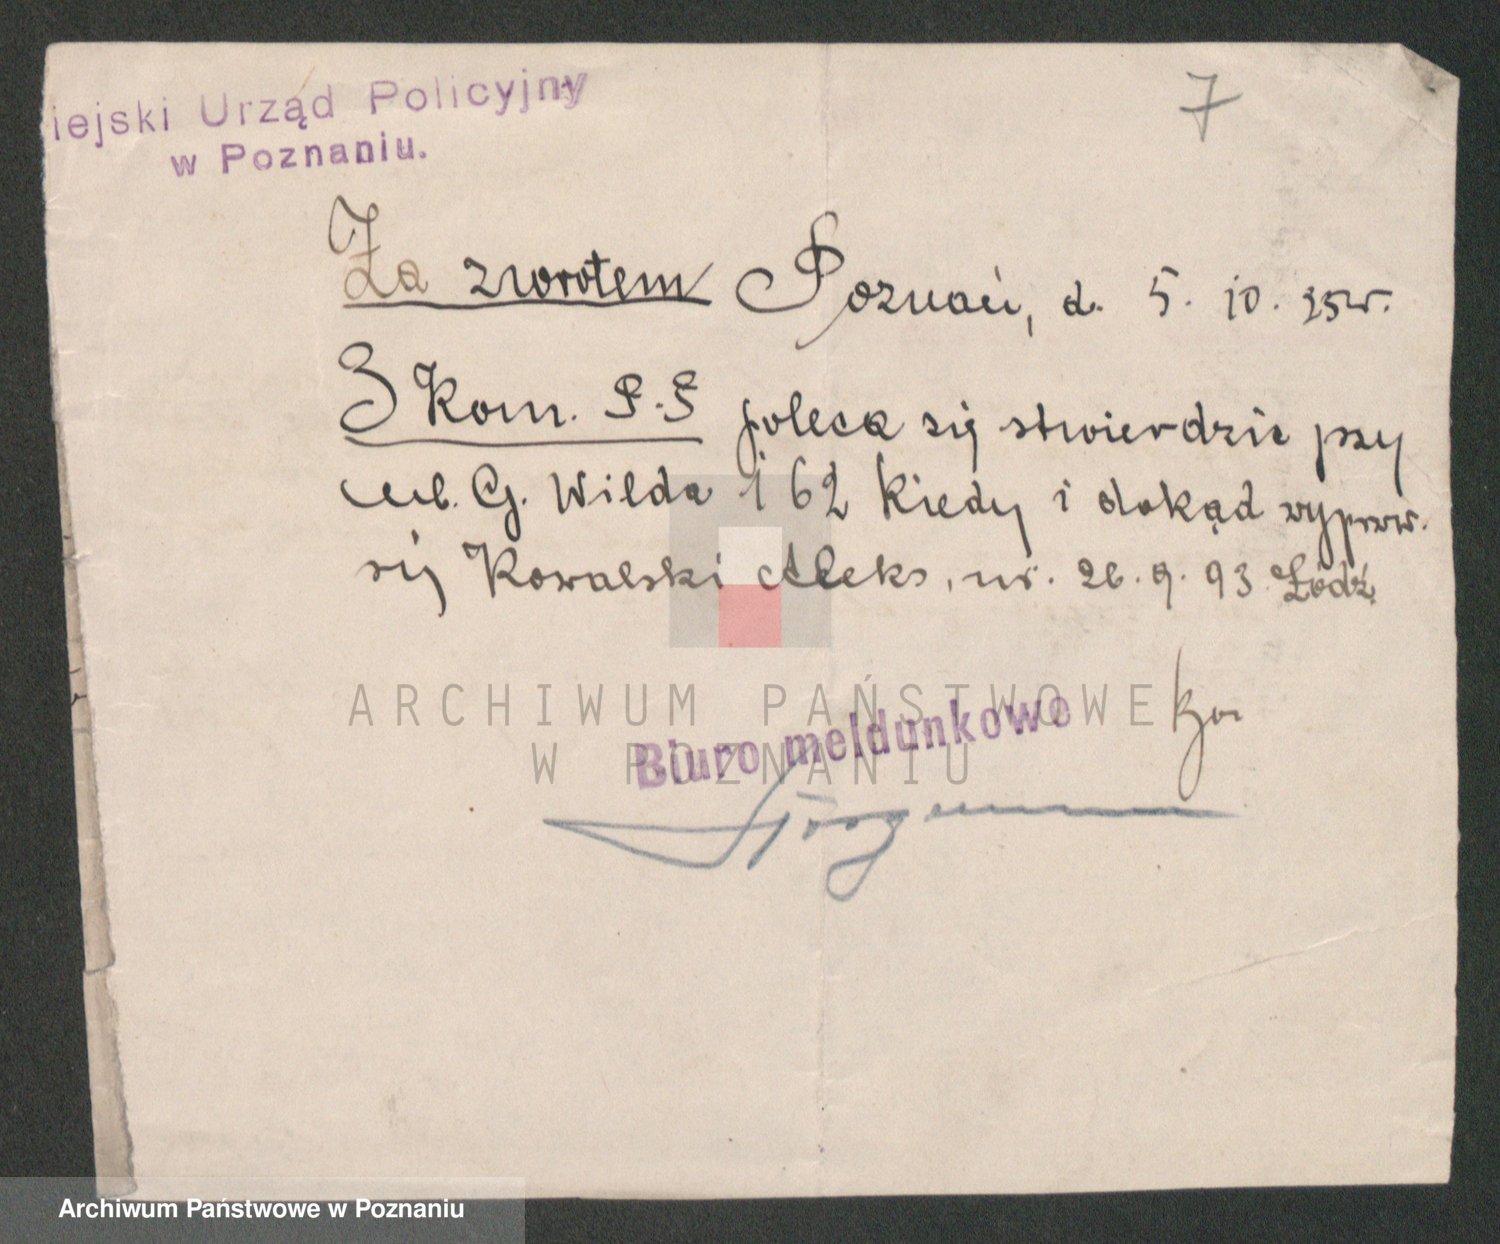 iejski Urząd Policyjny
w Poznaniu.
7
Za zwrotem Poznań, d. 5. 10. 25 r.
3 Kom. P.P poleca się stwierdzić przy
ul. G. Wilda 162 kiedy i dokąd wyprow.
się Kowalski Aleks, ur. 26. 9. 93 Łódź
ARCHIWUM PAŃSTWOWE
W POZNANIU
Biuro meldunkowe
Archiwum Państwowe w Poznaniu